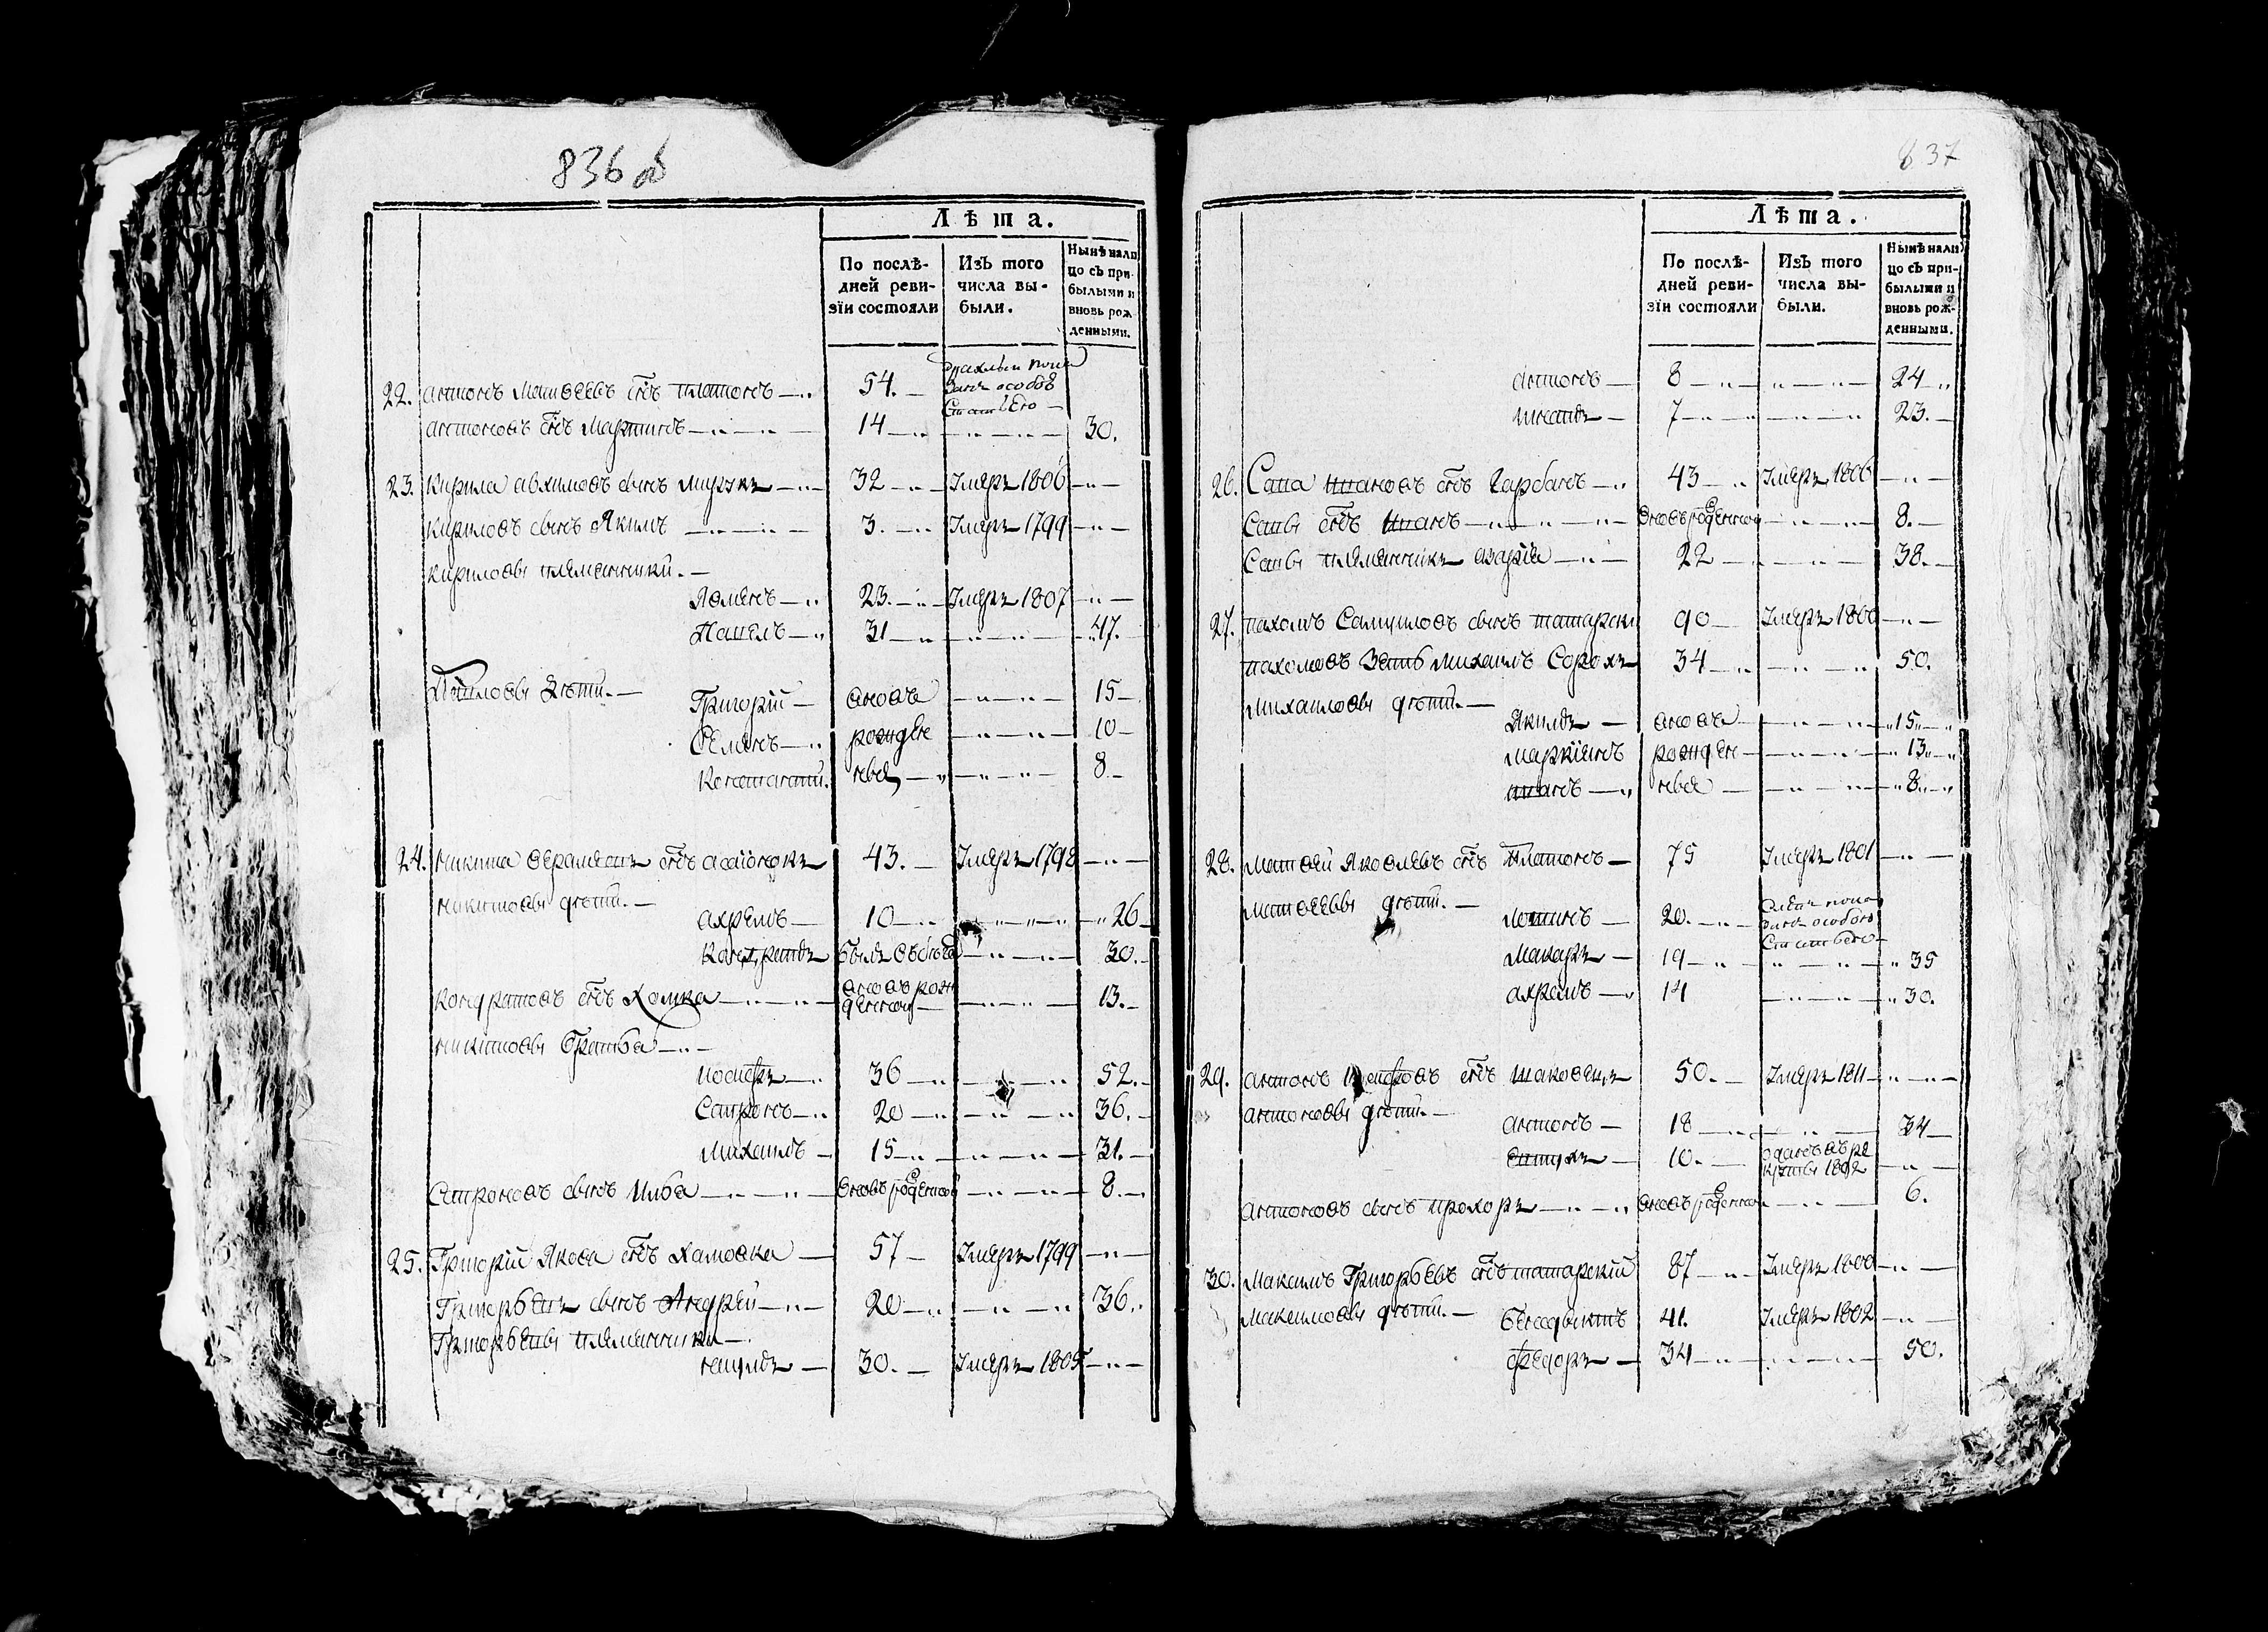 836 об
Лѣта.
По послѣдней ревизіи состояли
Изъ того числа выбыли.
Нынѣ налицо съ прибылыми и вновь рожденными.
22. антонъ Матвеевъ сынъ платонъ 54.
антоновъ снъ Мартинъ 14 30.
23. Кирила авхимовъ сынъ 32 Умеръ 1806
Кириловъ сынъ Якимъ 3. Умеръ 1799
Кириловы племянники.
23. Умеръ 1807
Павелъ 31 47.
Павловы дети.
Григорій вновь 15
Семенъ рожде 10
Константи. ные 8
24. Никита снъ 43. Умеръ 1798
Никитовы дети.
ахремъ 10 26
Кондратъ 30.
Кондратовъ снъ Хомка вновь рожденной 13.
Никитовы братья
иосифъ 36 52.
Сапронъ 20 36.
Михаилъ 15 31.
Сапроновъ сынъ Илья вновь рожденной 8.
25. Григорій Якова снъ 57 Умеръ 1799
Григорьевъ сынъ Андрей 20 36.
Григорьевы племянники
наумъ 30. Умеръ 1805
837
Лѣта.
По послѣдней ревизіи состояли
Изъ того числа выбыли.
Нынѣ налицо съ прибылыми и вновь рожденными.
антонъ 8 24
игнатъ 7 23.
26. Сава ивановъ снъ 43 Умеръ 1806
Савы снъ иванъ вновь рожденной 8.
Савы племянникъ азарія 22 38.
27. пахомъ Самуиловъ сынъ татарски 90 Умеръ 1800
пахомовъ зять михаилъ Сорока 34 50.
Михаиловы дети.
Якимъ вновь 15
Маркіянъ рожден 13
иванъ ные 8
28. Матвей Яковлевъ снъ Платонъ 75 Умеръ 1801
Матвеевы дети.
Логинъ 20.
Макаръ 19 35
ахремъ 14 30.
29. антонъ снъ 50. Умеръ 1811
антоновы дети.
антонъ 18 34
10. отданъ въ рекруты 1802
антоновъ сынъ прохоръ вновь рожденной 6.
30. Максимъ Григорьевъ снъ татарскій 87 Умеръ 1800
Максимовы дети. бенедыктъ 41. Умеръ 1802
федоръ 34 50.